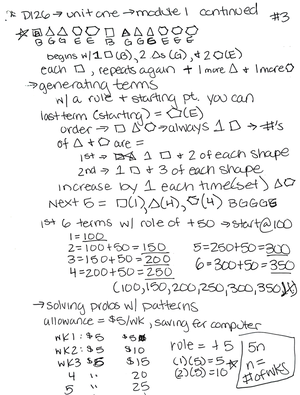 * D126 → unit one → module 1 continued #3
☆ □ △ △ ⬠ ⬠ □ △ △ △ ⬠ ⬠ ⬠
B G G E E B G G G E E E
begins w/ 1 □ (B), 2 △s (G), & 2 ⬠ (E)
each □, repeats again + 1 more △ + 1 more ⬠
→ generating terms
w/ a rule + starting pt. you can
last term (starting) = ⬠ (E)
order → □ △ ⬠ → always 1 □ → #'s
of △ + ⬠ are =
1st → 1 □ + 2 of each shape
2nd → 1 □ + 3 of each shape
increase by 1 each time (set) △ ⬠
Next 5 = □(1), △(4), ⬠(4) BGGGG
1st 6 terms w/ role of +50 → start@100
1 = 100
2 = 100+50 = 150 5 = 250+50 = 300
3 = 150+50 = 200 6 = 300+50 = 350
4 = 200+50 = 250
(100, 150, 200, 250, 300, 350)
→ solving probs w/ patterns
allowance = $5/wk, saving for computer
WK1: $5 $5 role = +5 5n
WK2: $5 $10 (1)(5) = 5 ☆ n =
WK3 $5 $15 (2)(5) = 10 # of wks
4 " 20
5 " 25